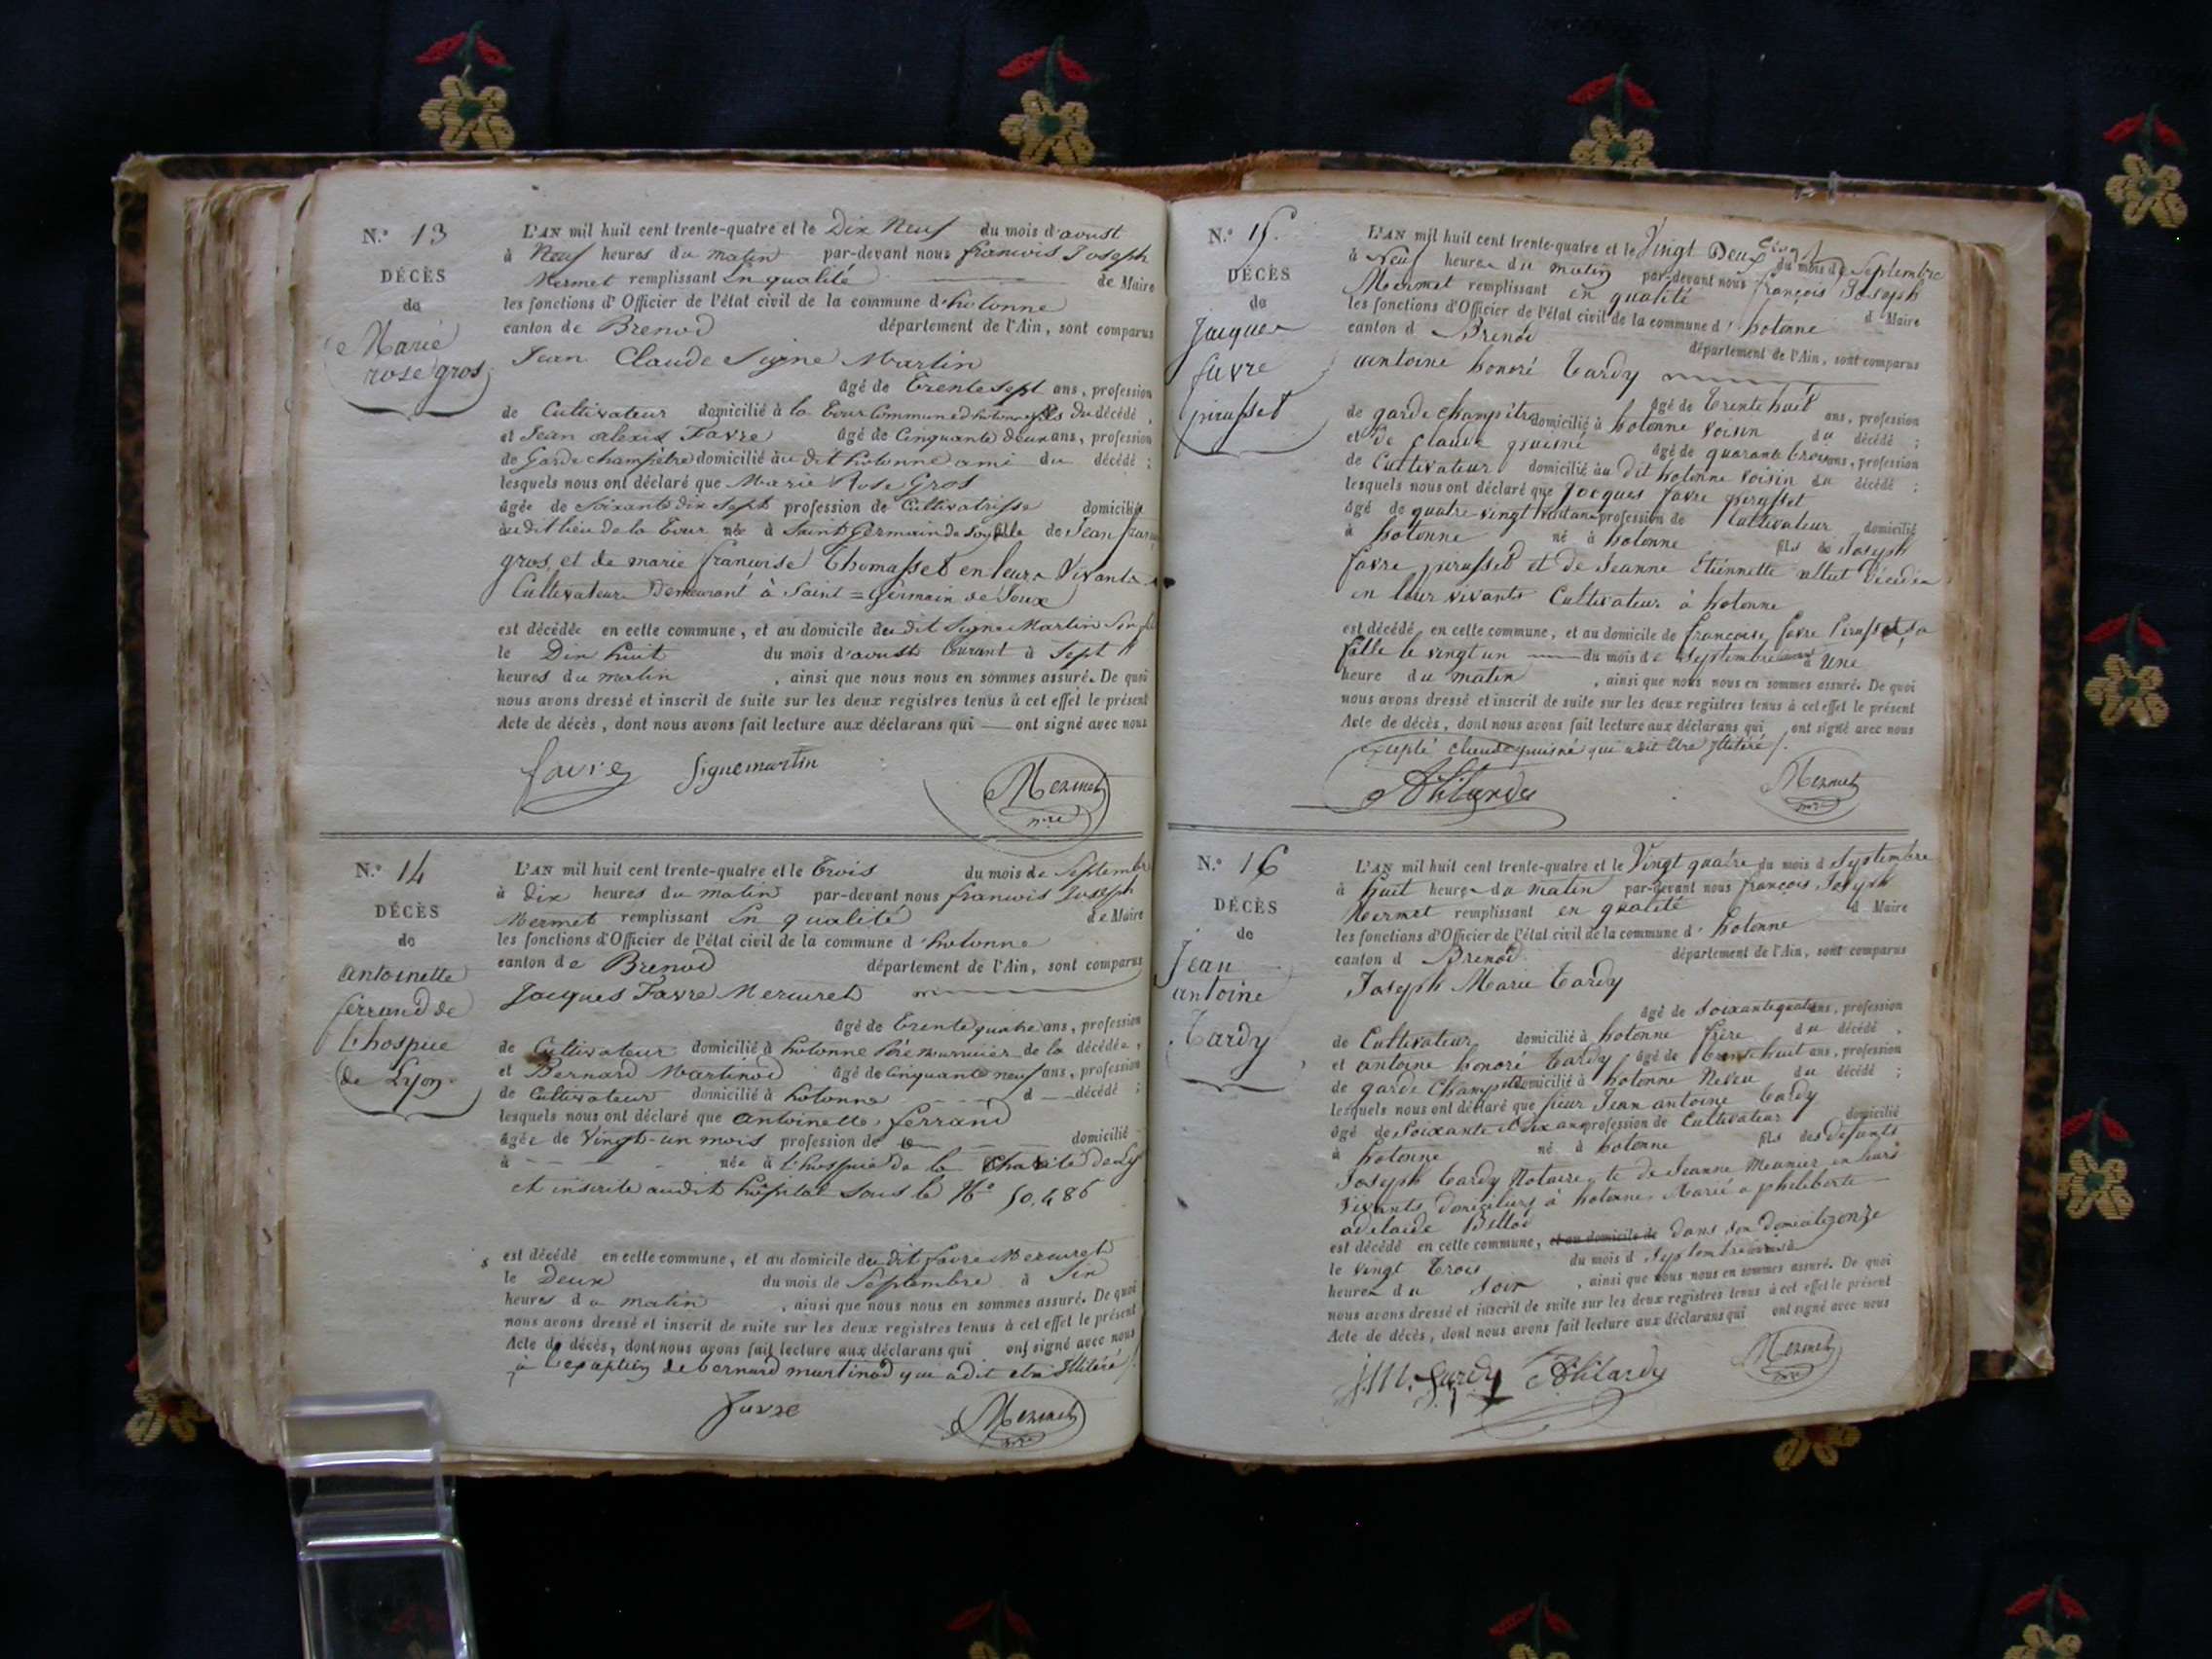 N.° 13
DÉCÈS
de
Marie
rose gros
L'AN mil huit cent trente-quatre et le Dix Neuf du mois d'aoust
à Neuf heures du matin par-devant nous francois Joseph
Mermet remplissant En qualité de Maire
les fonctions d'Officier de l'état civil de la commune d'hotonne
canton de Brenod département de l'Ain, sont comparus
Jean Claude Signe Martin
âgé de Trente Sept ans, profession
de Cultivateur domicilié à la Tour Commune d'hotonne fils du décédé,
et Jean alexis Favre âgé de Cinquante deux ans, profession
de Garde champêtre domicilié au dit hotonne ami du décédé;
lesquels nous ont déclaré que Marie Rose Gros
âgée de Soixante dix Sept profession de Cultivatrisse domicilié
au dit lieu de la Tour née à Saint Germain de Joux fille de Jean
gros, et de marie francoise Thomasset en leurs Vivants
Cultivateurs Demeurant à Saint = Germain de Joux
est décédée en cette commune, et au domicile du dit Signe Martin Son fils
le Dix huit du mois d'aoust Courant à Sept
heures du matin, ainsi que nous nous en sommes assuré. De quoi
nous avons dressé et inscrit de suite sur les deux registres tenus à cet effet le présent
Acte de décès, dont nous avons fait lecture aux déclarans qui — ont signé avec nous
favre Signemartin Mermet
mre
N.° 14
DÉCÈS
de
antoinette
ferrand de
l'hospice
de Lyon
L'AN mil huit cent trente-quatre et le Trois du mois de Septembre
à dix heures du matin par-devant nous francois Joseph
Mermet remplissant En qualité de Maire
les fonctions d'Officier de l'état civil de la commune d'hotonne
canton de Brenod département de l'Ain, sont comparus
Jacques Favre Mercuret
âgé de Trente quatre ans, profession
de Cultivateur domicilié à hotonne Père nourricier de la décédée,
et Bernard Martinod âgé de Cinquante neuf ans, profession
de Cultivateur domicilié à hotonne d décédé;
lesquels nous ont déclaré que antoinette ferrand
âgée de Vingt-un mois profession de domicilié
à née à l'hospice de la Charité de Ly
et inscrite au dit hôpital Sous le N° 50,486
est décédé en cette commune, et au domicile du dit favre Mercuret
le Deux du mois de Septembre à Six
heures du matin, ainsi que nous nous en sommes assuré. De quoi
nous avons dressé et inscrit de suite sur les deux registres tenus à cet effet le présent
Acte de décès, dont nous avons fait lecture aux déclarans qui ont signé avec nous
à l'exception de bernard martinod qui a dit etre Illitéré
favre Mermet
mre
N.° 15.
DÉCÈS
de
Jacques
favre
pirasset
L'AN mil huit cent trente-quatre et le Vingt Deux du mois de Septembre
à Neuf heures du matin par-devant nous françois Joseph
Mermet remplissant en qualité d Maire
les fonctions d'Officier de l'état civil de la commune d'hotonne
canton d Brenod département de l'Ain, sont comparus
antoine honoré Tardy
âgé de Trente huit ans, profession
de garde champêtre domicilié à hotonne voisin du décédé;
et de claude âgé de quarante trois ans, profession
de Cultivateur domicilié au Dit hotonne voisin du décédé;
lesquels nous ont déclaré que Jacques favre pirasset
âgé de quatre-vingt huit ans profession de Cultivateur domicilié
à hotonne né à hotonne fils de Joseph
favre pirasset et de Jeanne Etiennette décédés
en leur vivants Cultivateur à hotonne
est décédé en cette commune, et au domicile de francoise favre Pirasset, sa
fille le vingt un du mois de Septembre à Une
heure du matin, ainsi que nous nous en sommes assuré. De quoi
nous avons dressé et inscrit de suite sur les deux registres tenus à cet effet le présent
Acte de décès, dont nous avons fait lecture aux déclarans qui ont signé avec nous
excepté claude qui a dit être Illitéré
AhTardy Mermet
mre
N.° 16
DÉCÈS
de
Jean
antoine
Tardy
L'AN mil huit cent trente-quatre et le Vingt quatre du mois d Septembre
à huit heures du matin par-devant nous françois Joseph
Mermet remplissant en qualité d Maire
les fonctions d'Officier de l'état civil de la commune d'hotonne
canton d Brenod département de l'Ain, sont comparus
Joseph Marie Tardy
âgé de Soixante quatre ans, profession
de Cultivateur domicilié à hotonne frère du décédé,
et antoine honoré Tardy âgé de trente huit ans, profession
de garde champêtre domicilié à hotonne Neveu du décédé;
lesquels nous ont déclaré que sieur Jean antoine Tardy
âgé de Soixante et dix ans profession de Cultivateur domicilié
à hotonne né à hotonne fils des defunts
Joseph Tardy Notaire, et de Jeanne Meunier en leurs
vivants domiciliés à hotonne, Marié a philiberte
adelaide Billod
est décédé en cette commune, et au domicile de dans son domicile
le vingt Trois du mois d Septembre à onze
heures du Soir, ainsi que nous nous en sommes assuré. De quoi
nous avons dressé et inscrit de suite sur les deux registres tenus à cet effet le présent
Acte de décès, dont nous avons fait lecture aux déclarans qui ont signé avec nous
J.M. Tardy AhTardy Mermet
mre